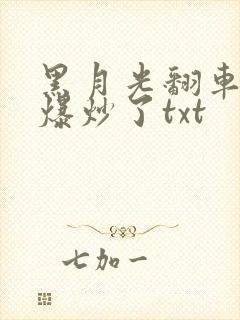 黑月光翻车
爆炒了txt
七加一